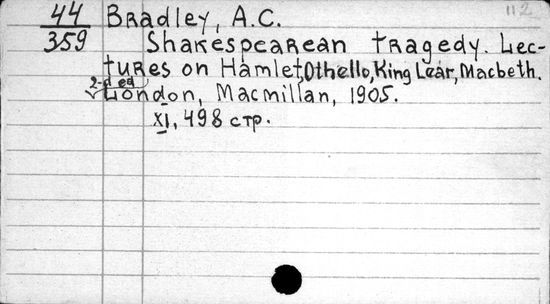 44 Bradley, A.C. 112
359 Shakespearean tragedy. Lec-
tures on Hamlet, Othello, King Lear, Macbeth.
2-d ed
London, Macmillan, 1905.
XI, 498 стр.